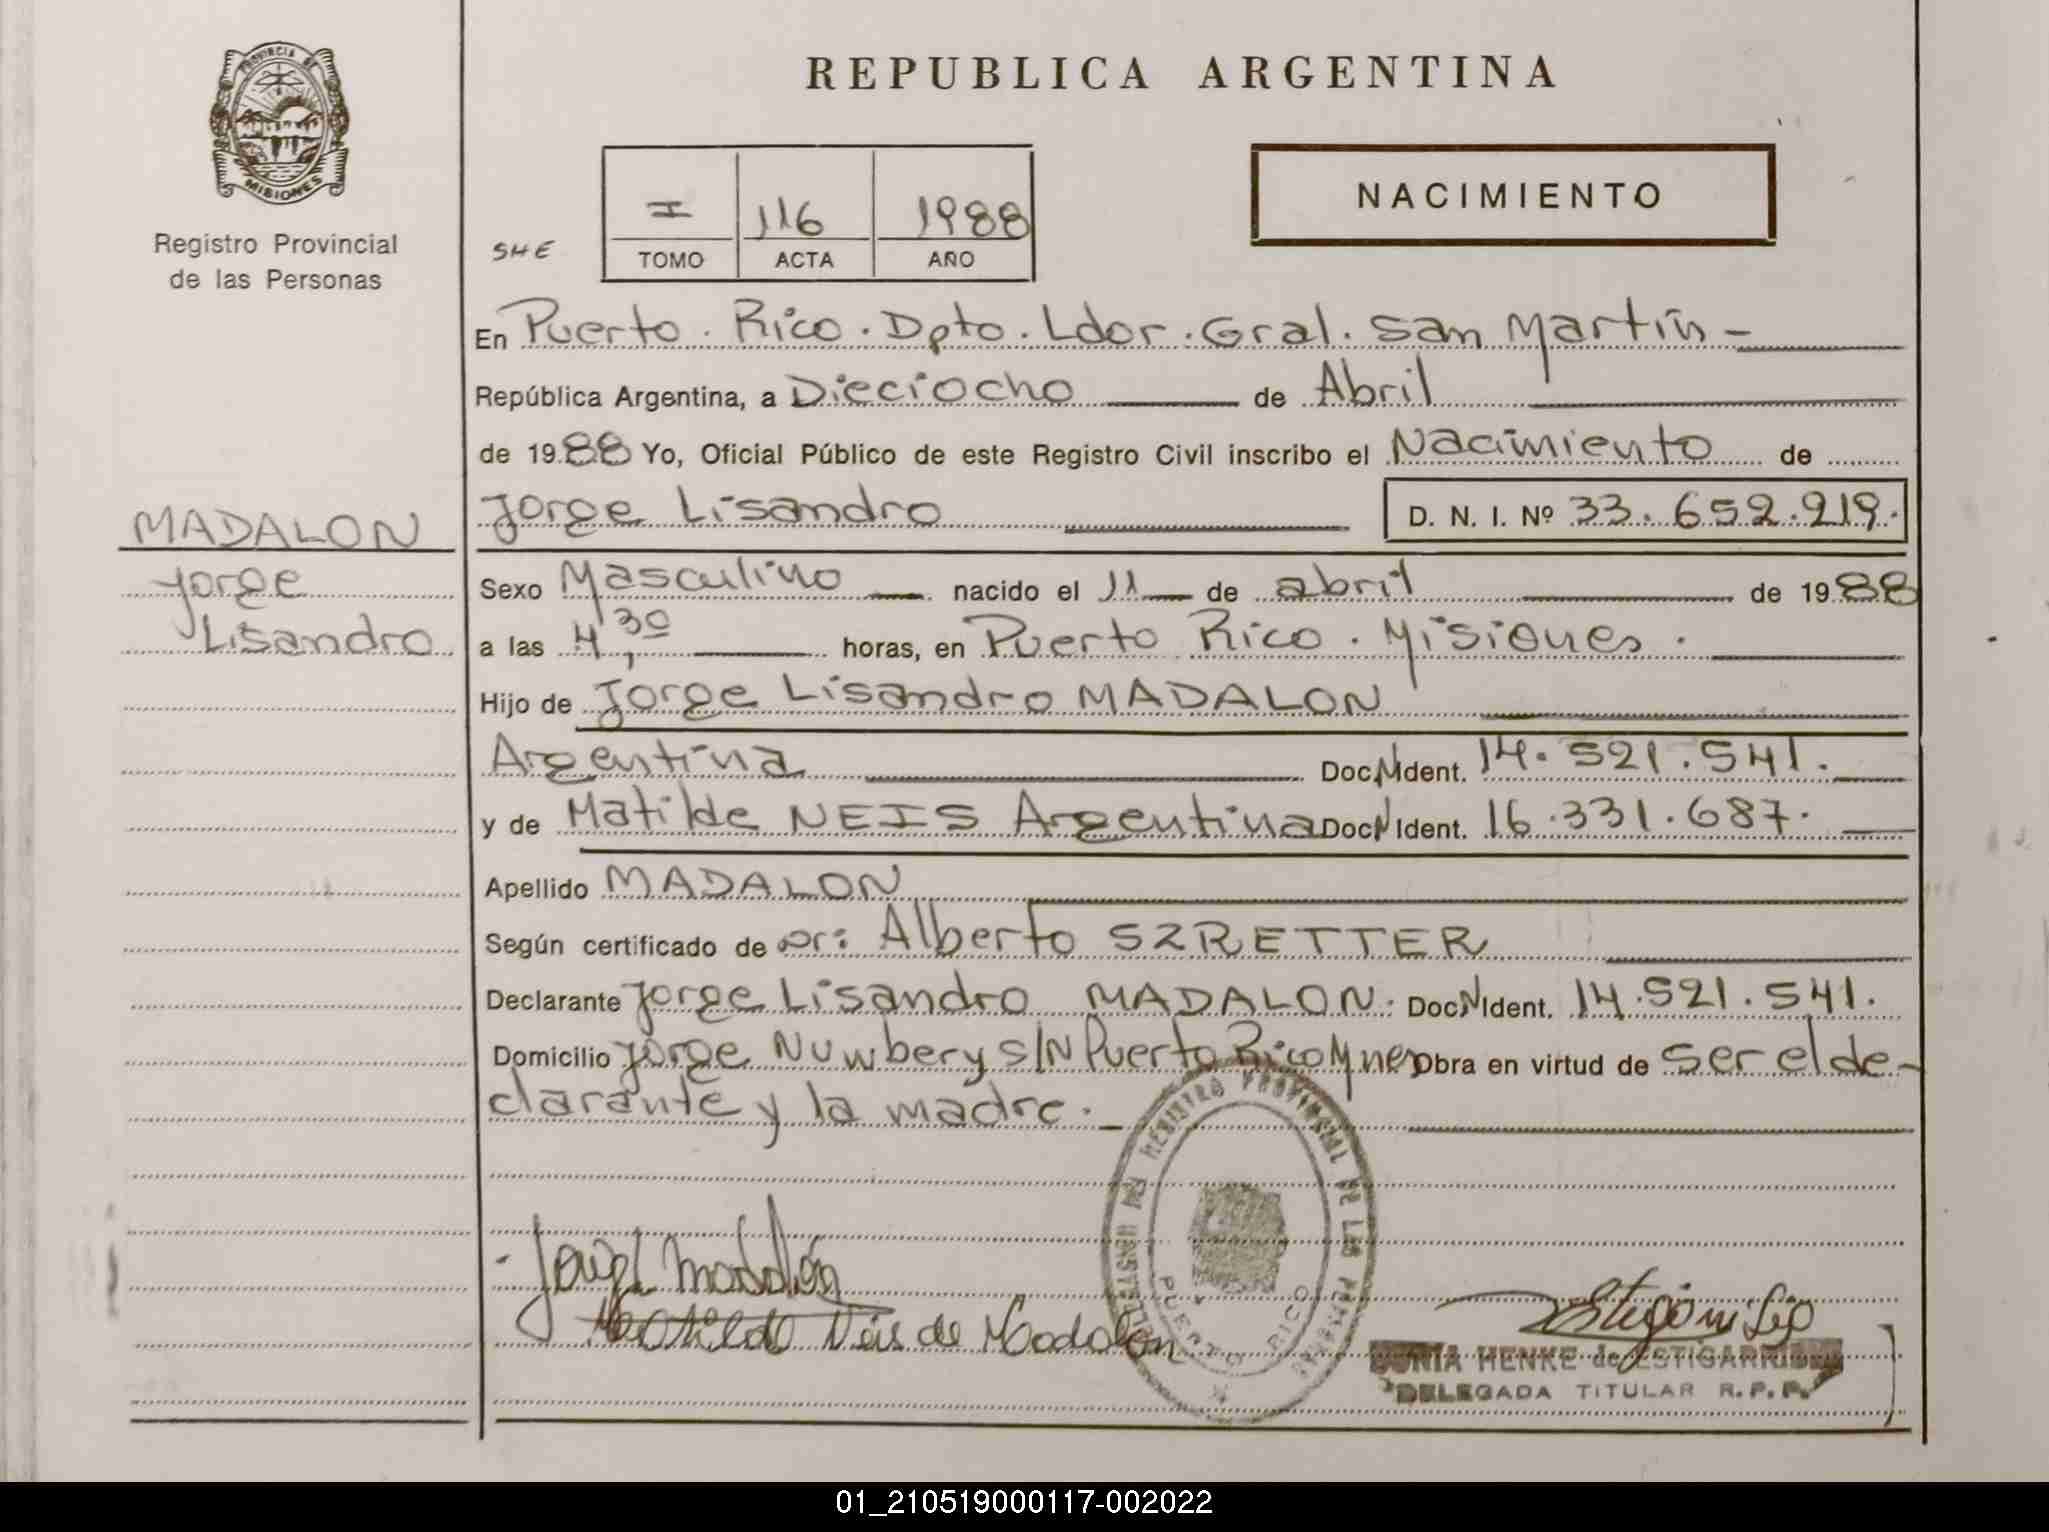 PROVINCIA DE
MISIONES
Registro Provincial
de las Personas
REPUBLICA ARGENTINA
NACIMIENTO
SHE
I 116 1988
TOMO ACTA AÑO
En Puerto. Rico. Dpto. Ldor. Gral. San Martín -
República Argentina, a Dieciocho de Abril
de 1988 Yo, Oficial Público de este Registro Civil inscribo el Nacimiento de
Jorge Lisandro D. N. I. Nº 33.652.219.
MADALON
Jorge
Lisandro
Sexo Masculino nacido el 11 de abril de 1988
a las 4,30 horas, en Puerto Rico. Misiones.
Hijo de Jorge Lisandro MADALON
Argentina Doc. Ident. 14.521.541.
y de Matilde NEIS Argentina Doc. Ident. 16.331.687.
Apellido MADALON
Según certificado de Dr: Alberto SZRETTER
Declarante Jorge Lisandro MADALON. Doc. Ident. 14.521.541.
Domicilio Jorge Nuwbery S/N Puerto Rico Mnes Obra en virtud de ser el de-
clarante y la madre.
REGISTRO PROVINCIAL DE LAS PERSONAS
PUERTO RICO
Madalón
Matilde Neis de Madalon
SONIA HENKE de ESTIGARRIBIA
DELEGADA TITULAR R. P. P.
01_210519000117-002022